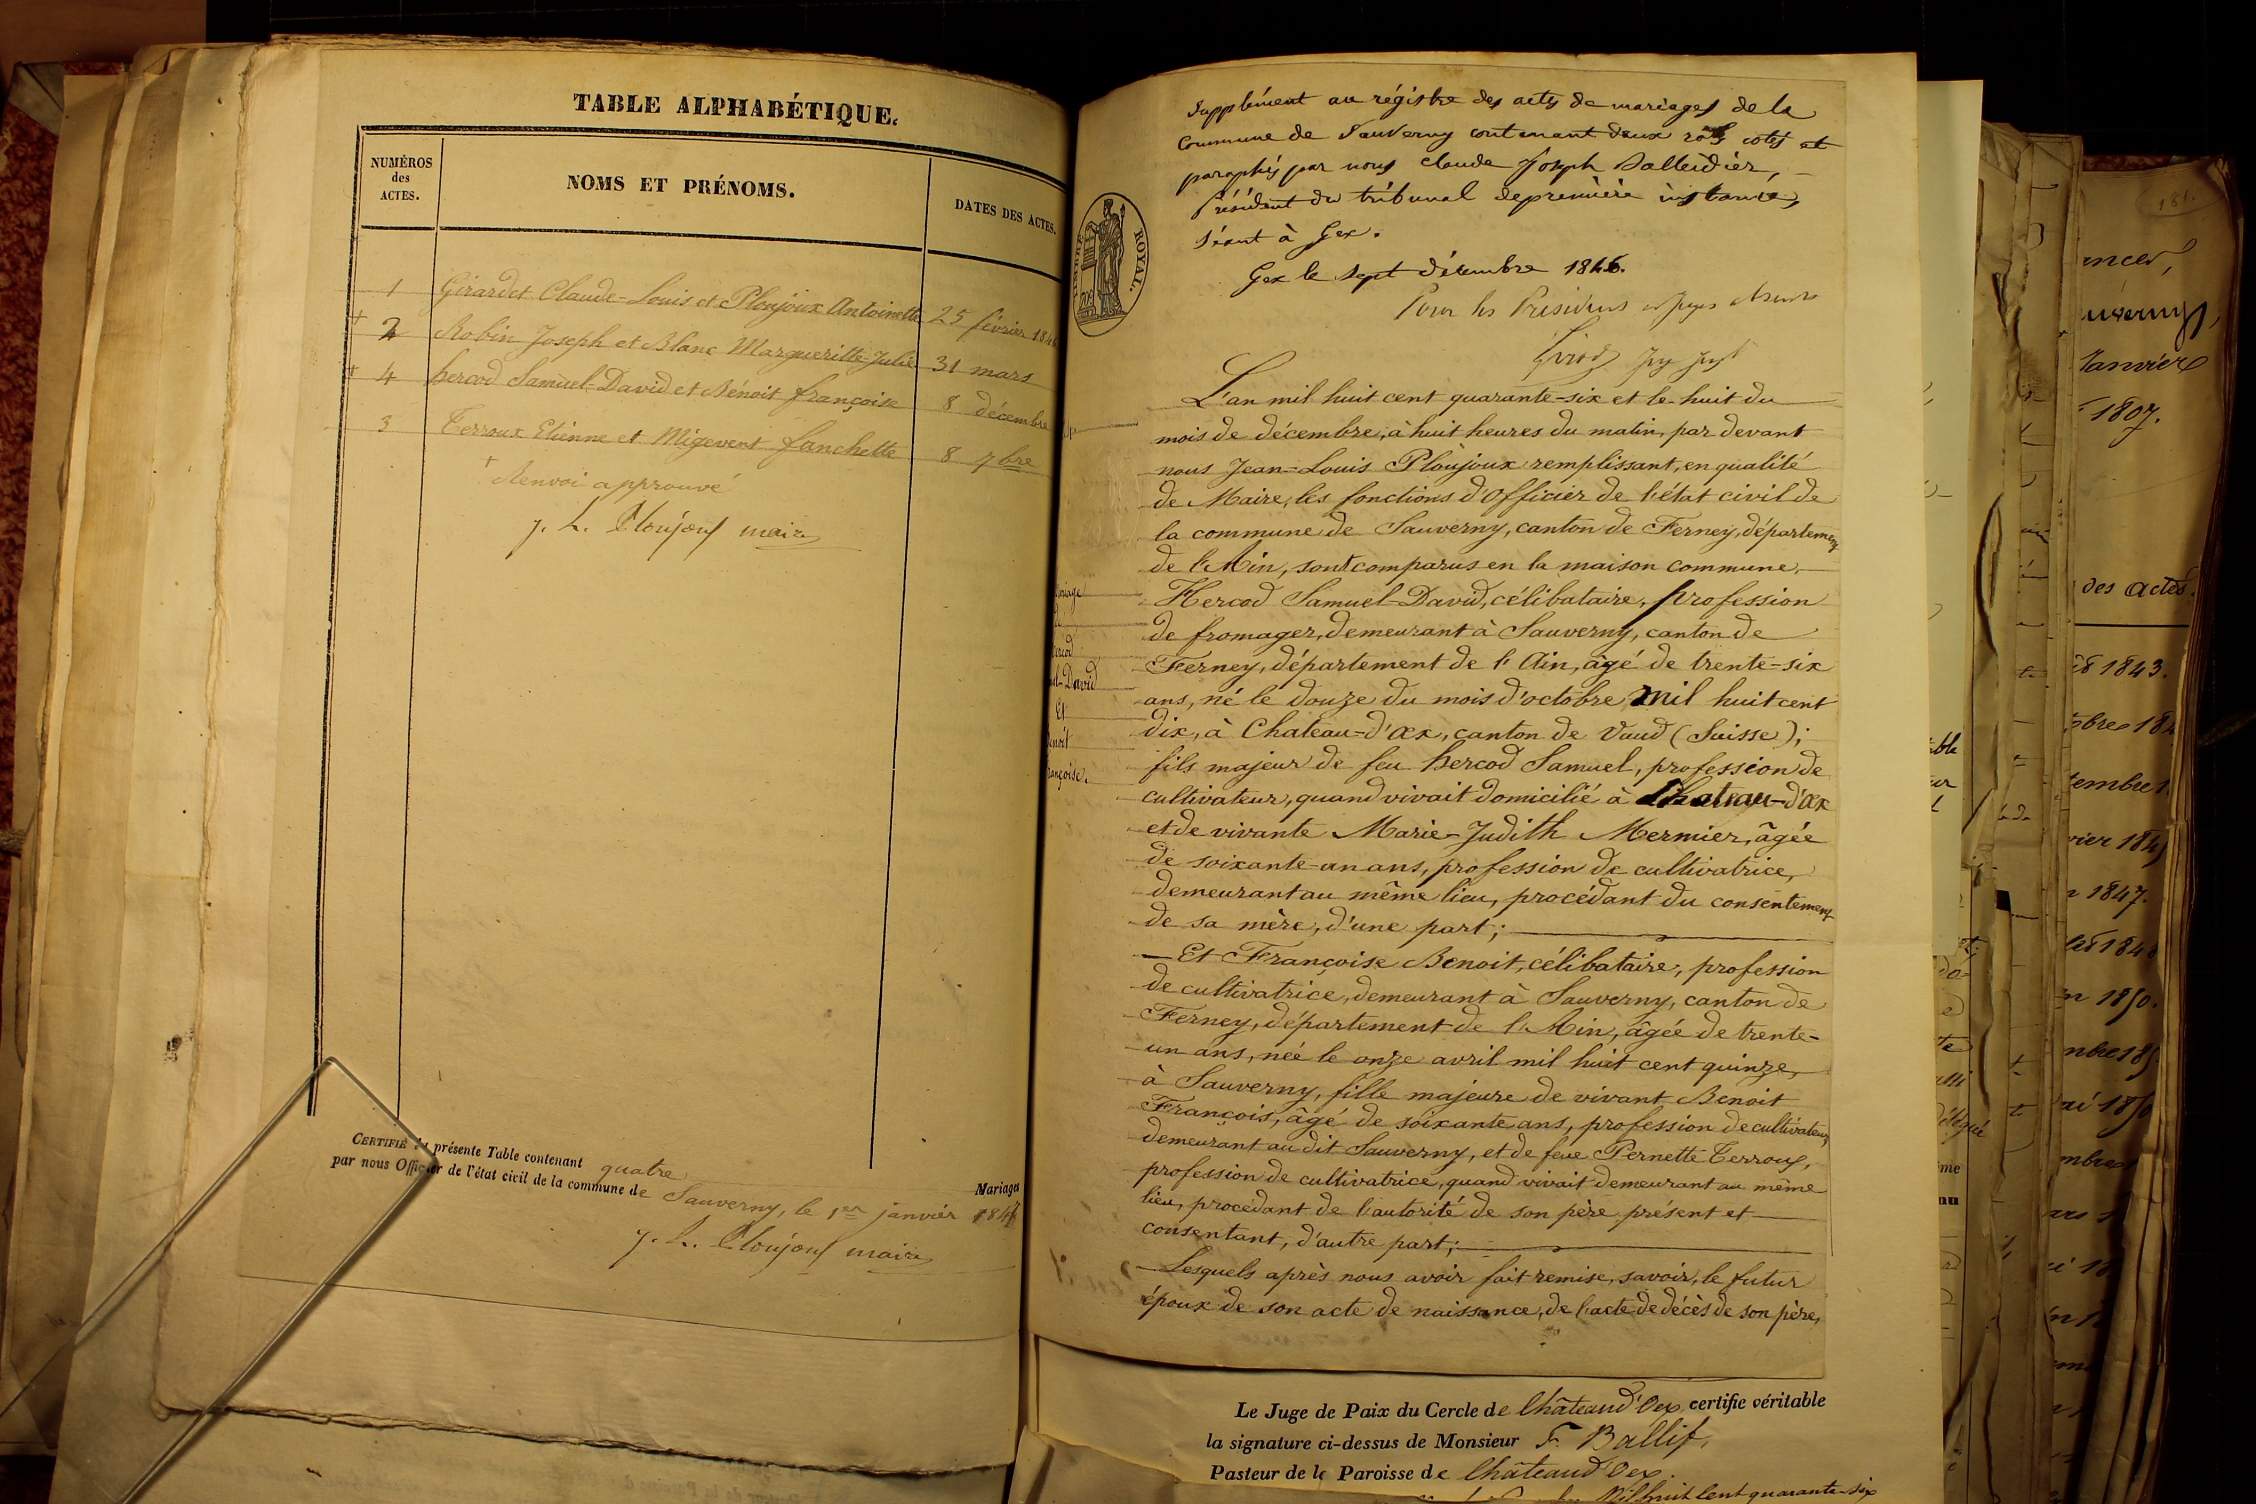 TABLE ALPHABÉTIQUE.
NUMÉROS
des
ACTES.
NOMS ET PRÉNOMS.
DATES DES ACTES.
1 Girardet Claude-Louis et Ploujoux Antoinette 25 février 184
+ 2 Robin Joseph et Blanc Margueritte-Julie 31 mars
+ 4 hercod Samuel-David et Bénoit françoise 8 décembre
3 Terroux Etienne et Migevent fanchette 8 7bre
+ Renvoi approuvé
J. L. Ploujoux maire
CERTIFIÉ la présente Table contenant quatre Mariages
par nous Officier de l'état civil de la commune de Sauverny, le 1er janvier 184
J. L. Ploujoux maire
Supplément au régistre des actes de mariages de la
Commune de Sauverny contenant deux rôles cotés et
paraphés par nous Claude Joseph Balleidier,
Président du tribunal de première instance,
séant à Gex.
Gex le sept décembre 1846.
Pour les Présidens et Juges
TIMBRE ROYAL.
L'an mil huit cent quarante-six et le huit du
mois de décembre, à huit heures du matin, par devant
nous Jean-Louis Ploujoux remplissant, en qualité
de Maire, les fonctions d'Officier de l'état civil de
la commune de Sauverny, canton de Ferney, département
de l'Ain, sont comparus en la maison commune.
Hercod Samuel-David, célibataire, profession
de fromager, demeurant à Sauverny, canton de
Ferney, département de l'Ain, âgé de trente-six
ans, né le douze du mois d'octobre mil huit cent
dix, à Chateau-d'œx, canton de Vaud (Suisse);
fils majeur de feu hercod Samuel, profession de
cultivateur, quand vivait domicilié à Chateau-d'œx
et de vivante Marie-Judith Mermier, âgée
de soixante-un ans, profession de cultivatrice,
demeurant au même lieu, procédant du consentement
de sa mère, d'une part;
Et Françoise Benoit, célibataire, profession
de cultivatrice, demeurant à Sauverny, canton de
Ferney, département de l'Ain, âgée de trente-
un ans, née le onze avril mil huit cent quinze,
à Sauverny, fille majeure de vivant Benoit
François, âgé de soixante ans, profession de cultivateur,
demeurant au dit Sauverny, et de feue Pernette Terroux,
profession de cultivatrice, quand vivait demeurant au même
lieu, procédant de l'autorité de son père présent et
consentant, d'autre part;
Lesquels après nous avoir fait remise, savoir, le futur
époux de son acte de naissance, de l'acte de décès de son père,
ariage
ercod
el-David
Et
enoit
rançoise.
Le Juge de Paix du Cercle de Château d'Oex certifie véritable
la signature ci-dessus de Monsieur F. Ballif,
Pasteur de la Paroisse de Château d'Oex.
Mil huit cent quarante-six
181.
ances,
Janvier
1807.
des actes.
1843.
184
1847.
184
1850.